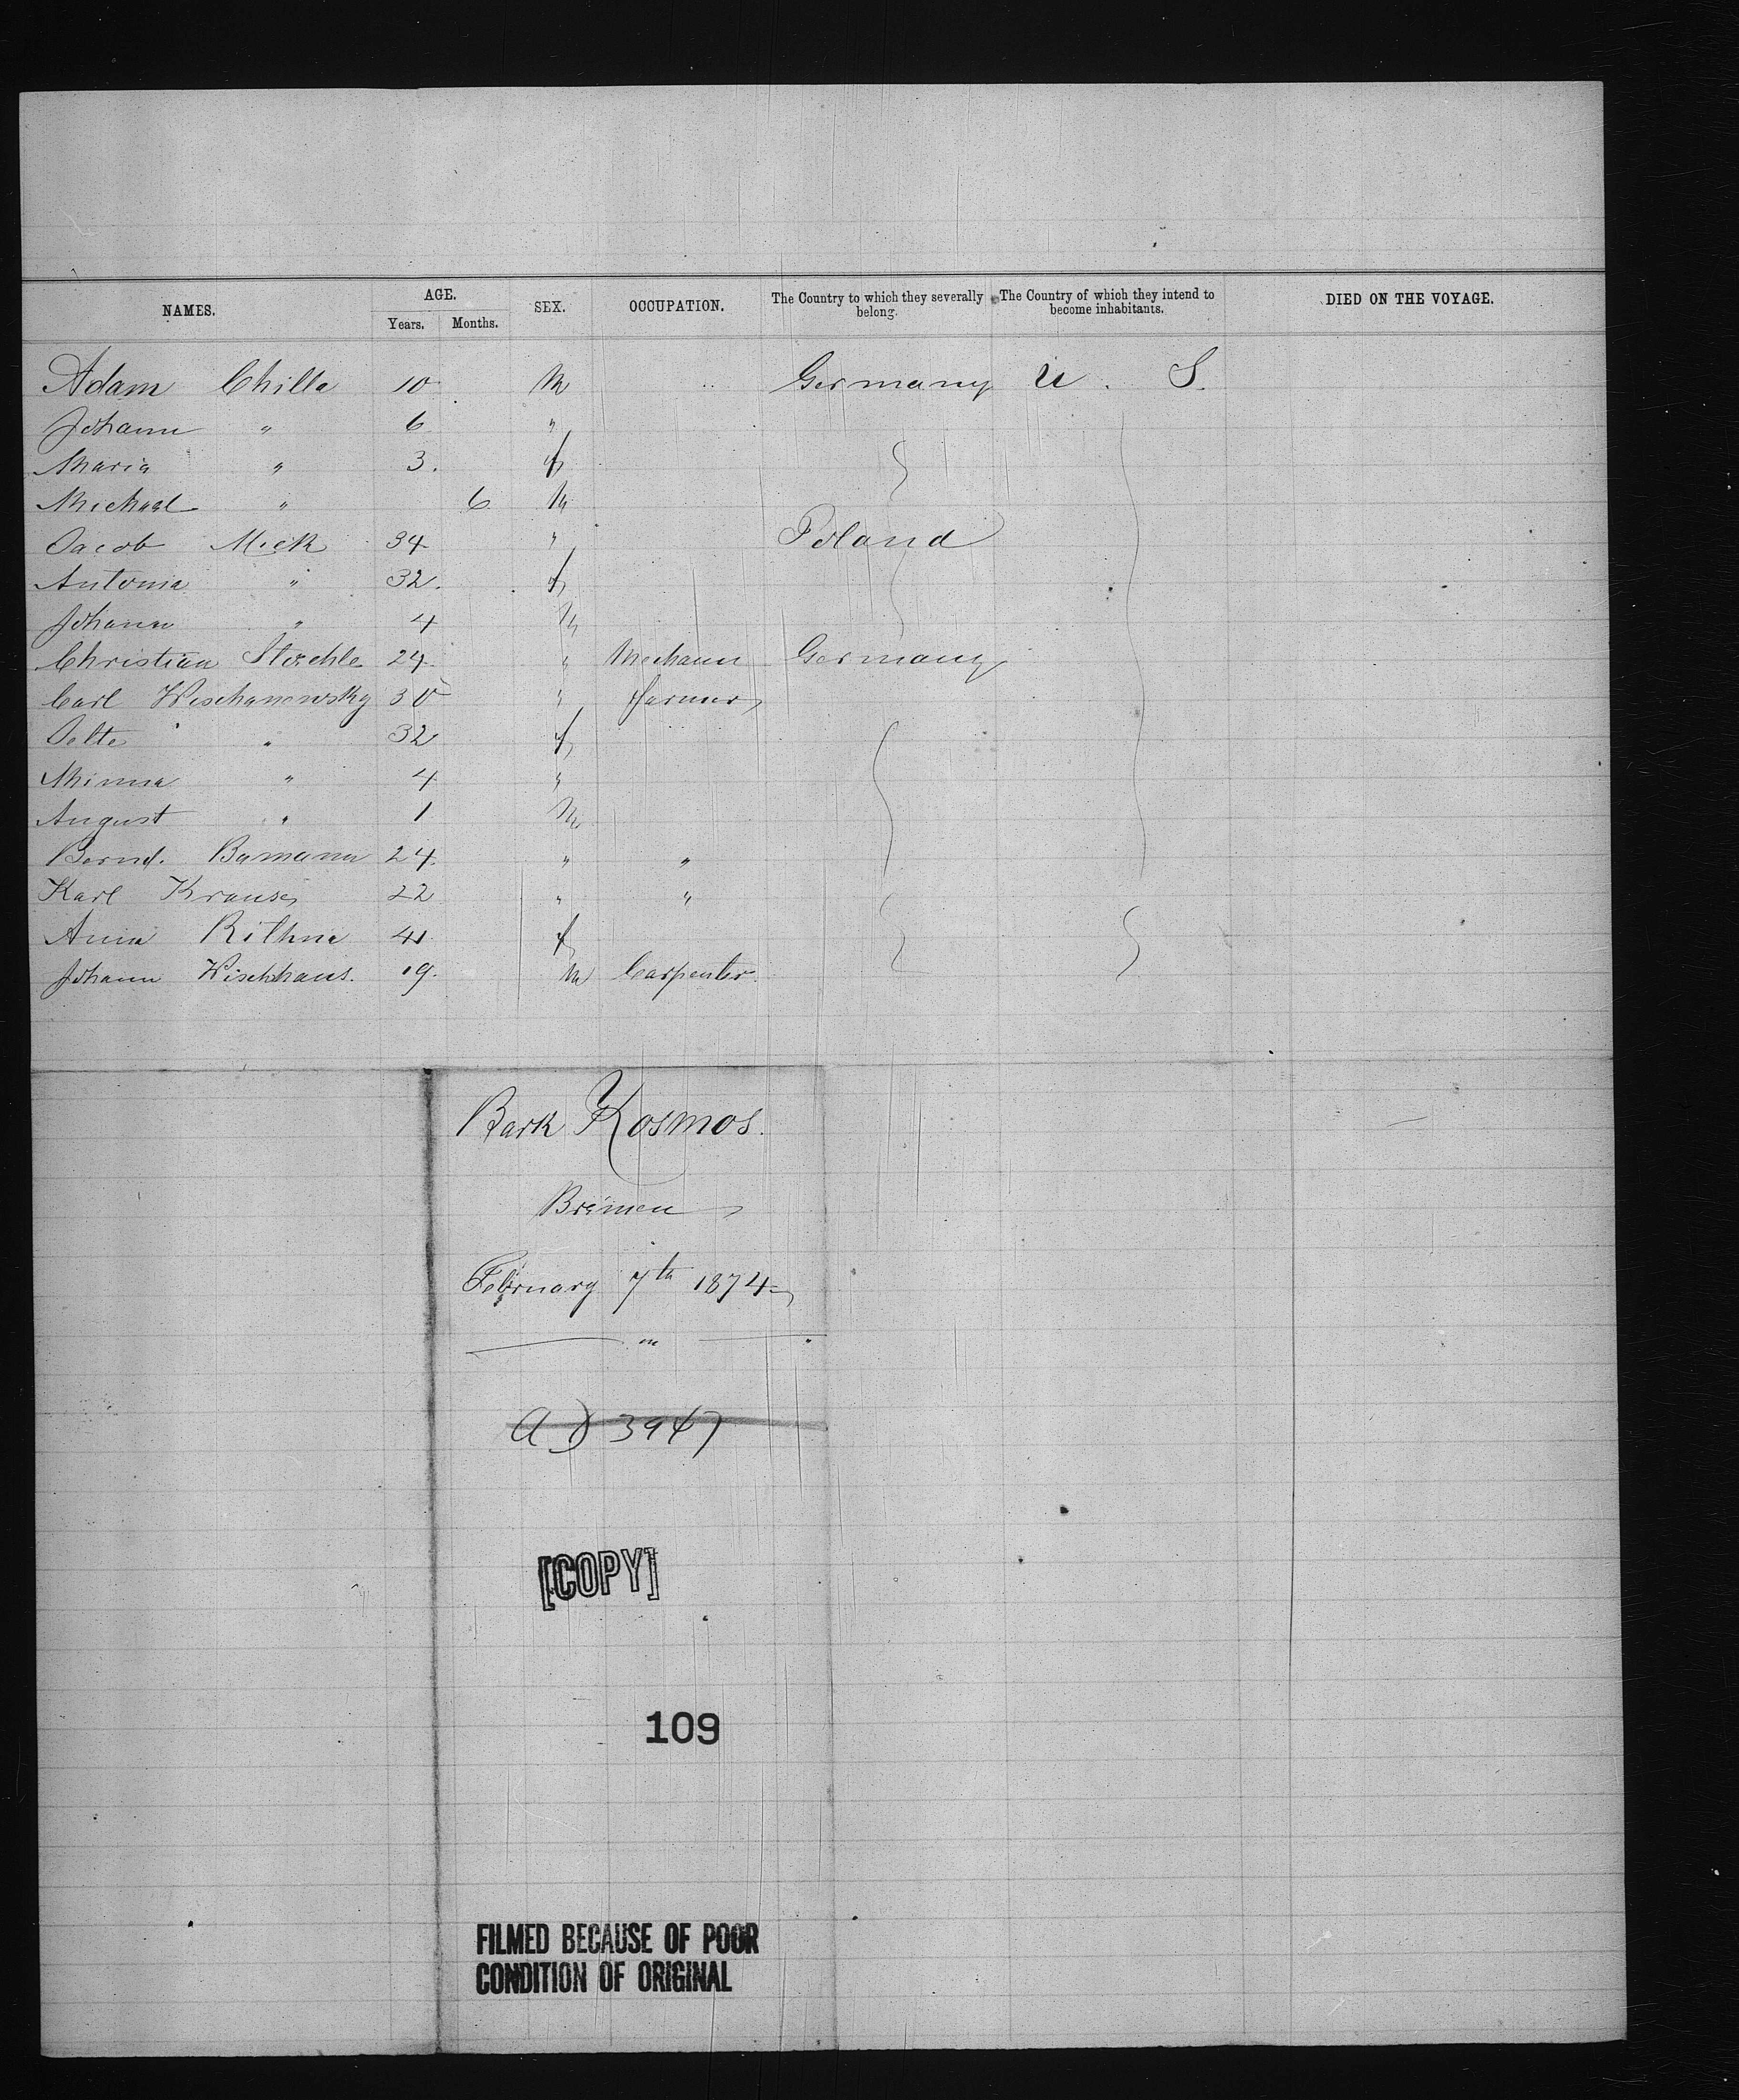 NAMES. AGE. Years. Months. SEX. OCCUPATION. The Country to which they severally belong. The Country of which they intend to become inhabitants. DIED ON THE VOYAGE.
Adam Chilla 10 M Germany U. S.
Johann " 6 "
Maria " 3. f
Michael " 6 M
Jacob Mick 34 " Poland
Antonia " 32. f
Johann " 4 M
Christian 24 " Mechann Germany
Carl Wischanowsky 30 " farmer
32 f
Minna " 4 "
August " 1 M
Bernd. Bamann 24 " "
Karl Krause 22 " "
Anna 41 f
Johann Wischhaus. 19. M Carpenter.
Bark Kosmos.
Bremen
February 7th 1874
A D 3947
[COPY]
109
FILMED BECAUSE OF POOR
CONDITION OF ORIGINAL